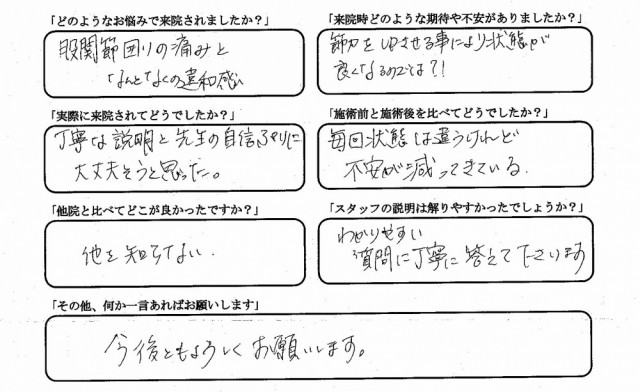 「どのようなお悩みで来院されましたか？」
股関節回りの痛みと
なんとなくの違和感
「来院時どのような期待や不安がありましたか？」
筋力をゆるさせる事により状態が
良くなるのでは?!
「実際に来院されてどうでしたか？」
丁寧な説明と先生の自信ぶりに
大丈夫そうと思った。
「施術前と施術後を比べてどうでしたか？」
毎回状態は違うけれど
不安が減ってきている.
「他院と比べてどこが良かったですか？」
他を知らない.
「スタッフの説明は解りやすかったでしょうか？」
わかりやすい
質問に丁寧に答えて下さいます
「その他、何か一言あればお願いします」
今後ともよろしくお願いします。